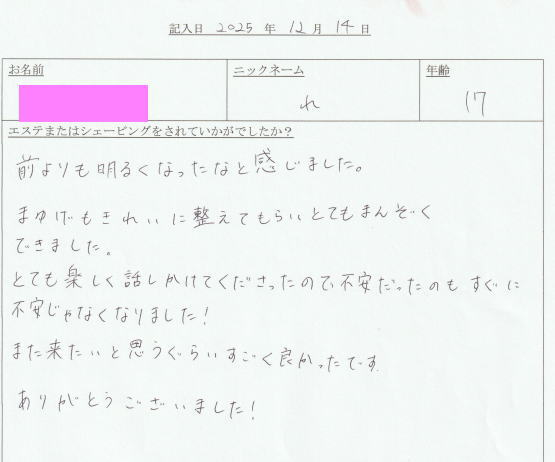 記入日 2025 年 12 月 14 日
お名前 ニックネーム 年齢
れ 17
エステまたはシェービングをされていかがでしたか？
前よりも明るくなったなと感じました。
まゆげもきれいに整えてもらいとてもまんぞく
できました。
とても楽しく話しかけてくださったので不安だったのもすぐに
不安じゃなくなりました！
また来たいと思うぐらいすごく良かったです
ありがとうございました！